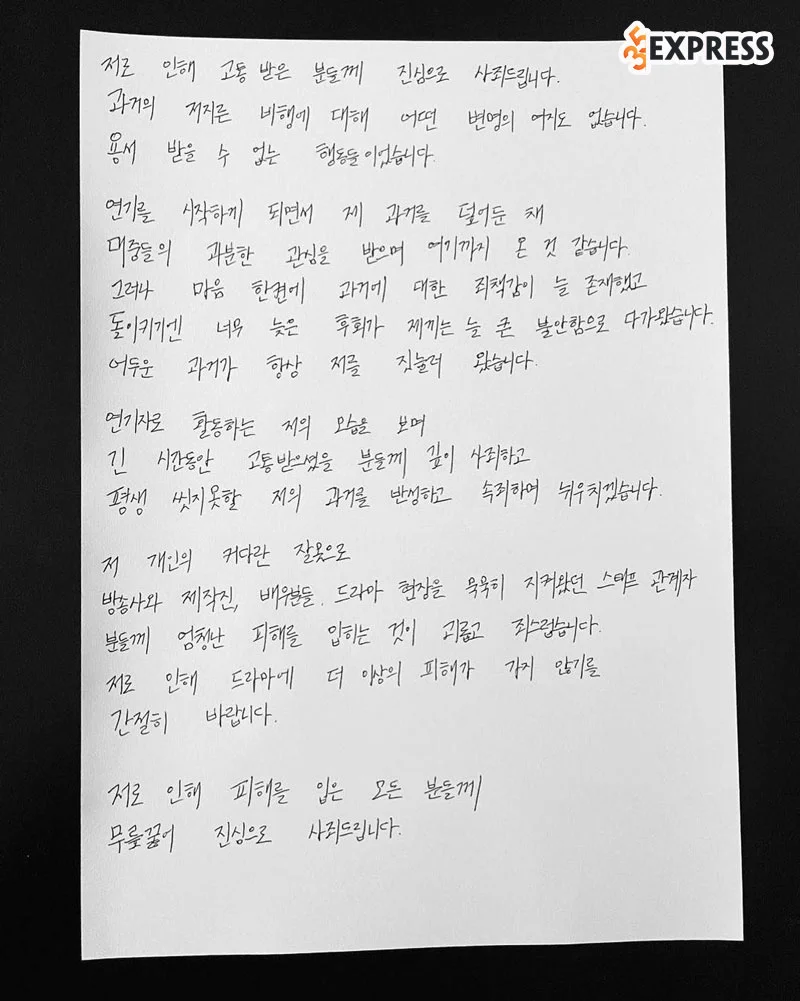 35 EXPRESS
저로 인해 고통 받은 분들께 진심으로 사죄드립니다.
과거의 저지른 비행에 대해 어떤 변명의 여지도 없습니다.
용서 받을 수 없는 행동들이었습니다.
연기를 시작하게 되면서 제 과거를 덮어둔 채
대중들의 과분한 관심을 받으며 여기까지 온 것 같습니다.
그러나 마음 한켠에 과거에 대한 죄책감이 늘 존재했고
돌이키기엔 너무 늦은 후회가 제게는 늘 큰 불안함으로 다가왔습니다.
어두운 과거가 항상 저를 짓눌러 왔습니다.
연기자로 활동하는 저의 모습을 보며
긴 시간동안 고통받으셨을 분들께 깊이 사죄하고
평생 씻지못할 저의 과거를 반성하고 속죄하며 뉘우치겠습니다.
저 개인의 커다란 잘못으로
방송사와 제작진, 배우분들, 드라마 현장을 묵묵히 지켜왔던 스태프 관계자
분들께 엄청난 피해를 입히는 것이 괴롭고 죄스럽습니다.
저로 인해 드라마에 더 이상의 피해가 가지 않기를
간절히 바랍니다.
저로 인해 피해를 입은 모든 분들께
무릎꿇어 진심으로 사죄드립니다.